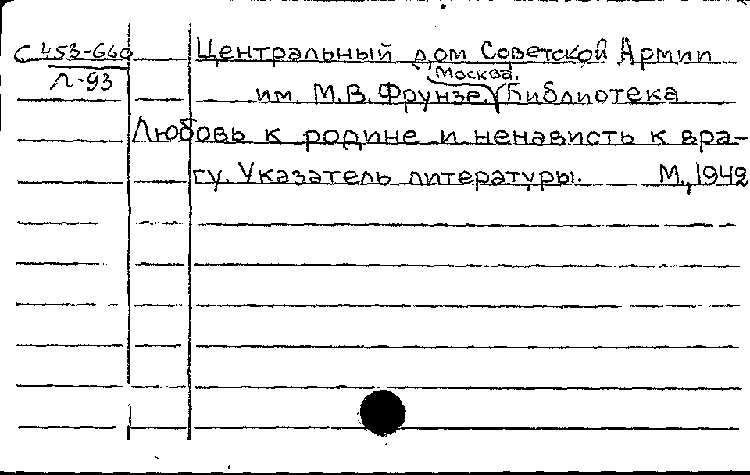 С 453-640 Центральный дом Советской Армии
Л-93 Москва.
им. М.В. Фрунзе. Библиотека
Любовь к родине и ненависть к вра-
гу. Указатель литературы. М., 1942